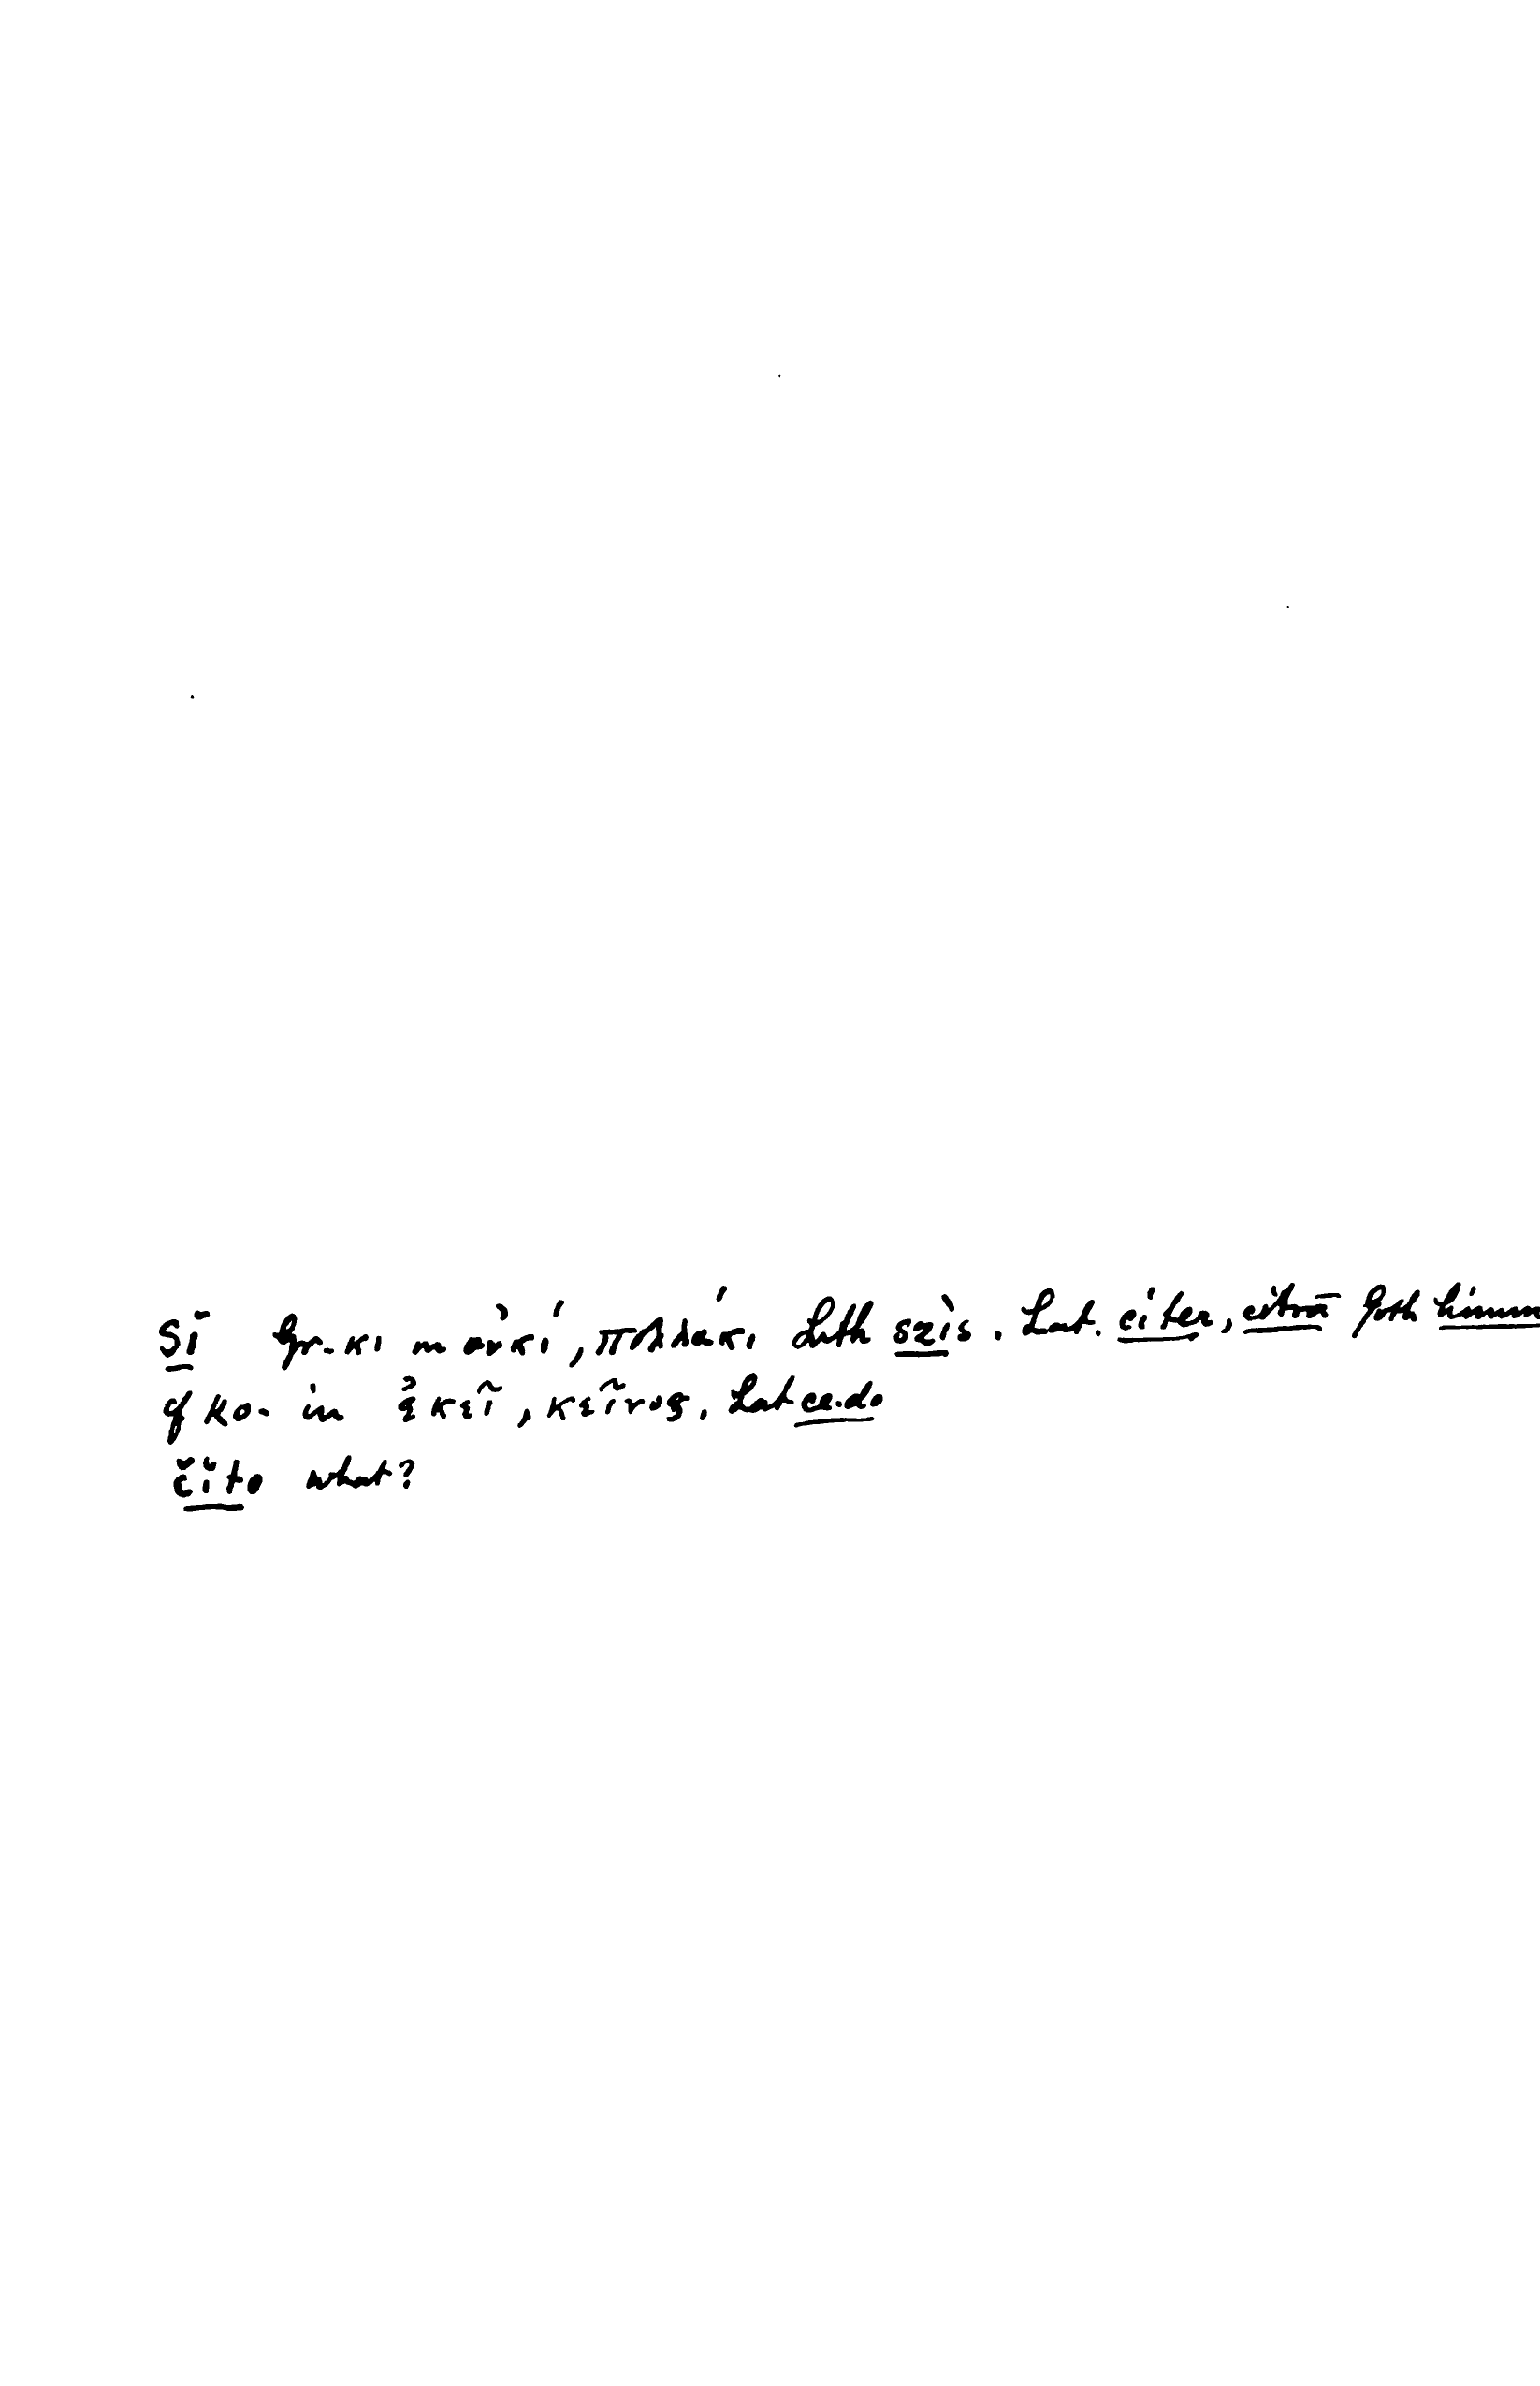 sĭ Gr. κι in οὐκί, πολλάκι Lith szìs. Lat. citer, citrā Goth himm
cf κο- in ἐκεῖ, κεῖνος, Lat ce-do
čĭto what?